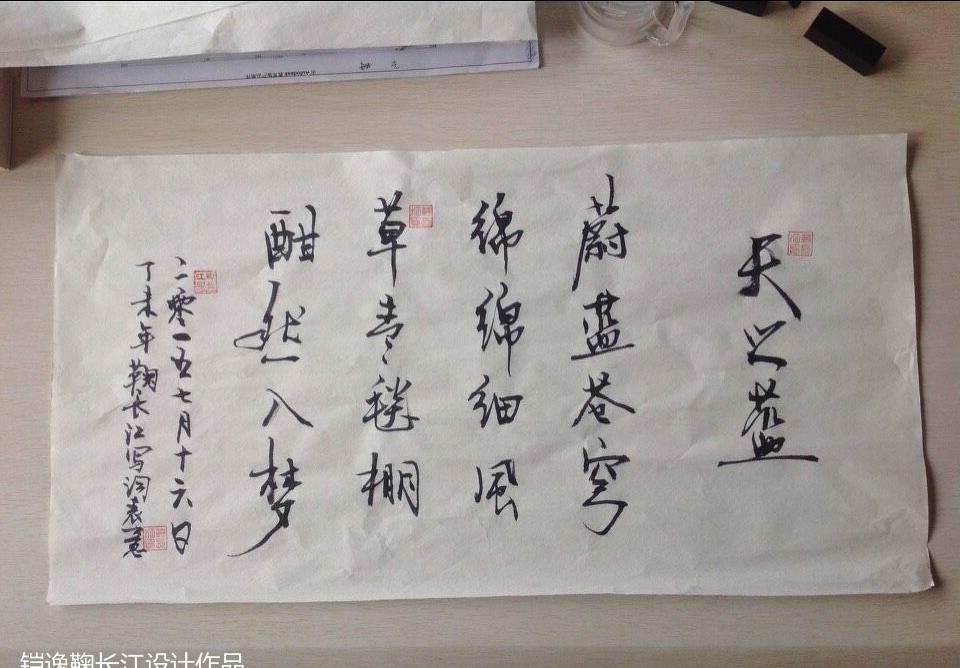 天之蓝
蔚蓝苍穹
绵绵细风
草青毯棚
酣然入梦
二零一五七月十六日
丁未年鞠长江写词表意
铠逸鞠长江设计作品